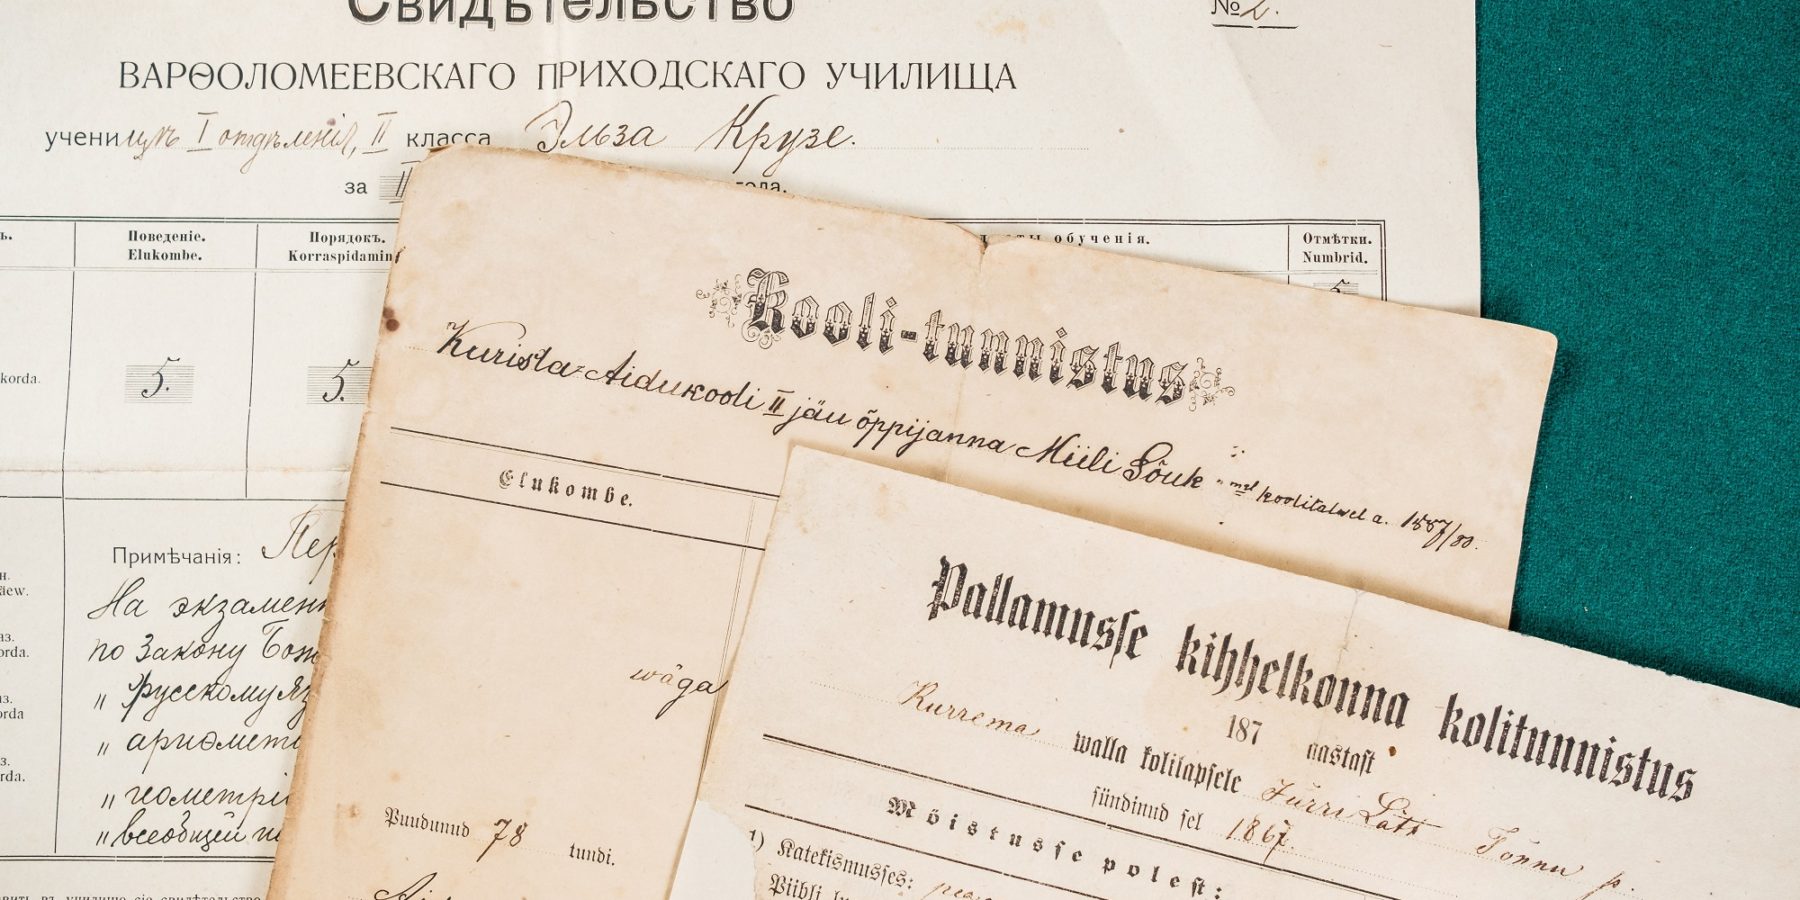 Свидѣтельство
№ 2.
ВАРѲОЛОМЕЕВСКАГО ПРИХОДСКАГО УЧИЛИЩА
ученицѣ I отдѣленія, II класса Эльза Крузе.
за года.
Поведеніе.
Elukombe.
Порядокъ.
Korraspidamin
обученія.
Отмѣтки.
Numbrid.
5.
5.
5
korda.
Примѣчанія: Пер
На экзамен
по Закону Бож
" Русскому яз
" ариѳмети
" геометрі
" всеобщей
Kooli-tunnistus
Kurista-Aidukooli II jäu õppijanna Miili Sõuk mel koolitalwel a. 1887/88.
Elukombe.
wäga
Puudunud 78 tundi.
Pallamusse kihhelkonna kolitunnistus
187 aastast
Kurrema walla kolilapsele Jürri Läts Tõnnu p.
sündinud sel 1867.
Mõistusse polest:
1) Katekismusses:
Piibli